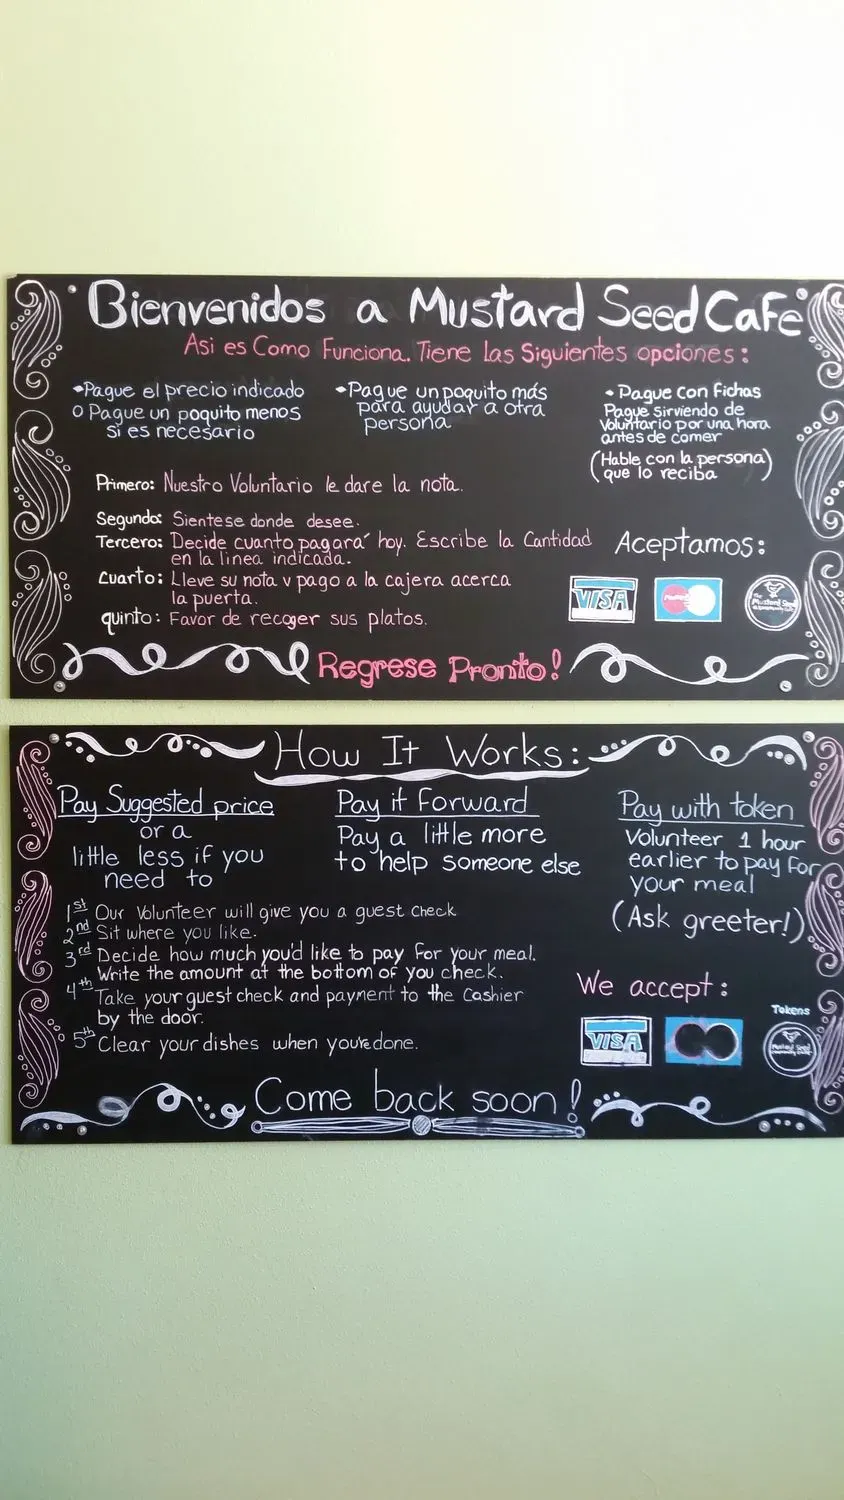 Bienvenidos a Mustard Seed Cafe
Asi es Como Funciona. Tiene las Siguientes opciones:
•Pague el precio indicado
O Pague un poquito menos
si es necesario
•Pague un poquito más
para ayudar a otra
persona
•Pague con fichas
Pague sirviendo de
Voluntario por una hora
antes de comer
(Hable con la persona)
que lo reciba
Primero: Nuestro Voluntario le dare la nota.
Segundo: Sientese donde desee.
Tercero: Decide cuanto pagará hoy. Escribe la Cantidad
en la linea indicada.
Cuarto: Lleve su nota y pago a la cajera acerca
la puerta.
quinto: Favor de recoger sus platos.
Aceptamos:
VISA
The
Mustard Seed
Regrese Pronto!
How It Works:
Pay Suggested price
or a
little less if you
need to
Pay it Forward
Pay a little more
to help someone else
Pay with token
Volunteer 1 hour
earlier to pay for
your meal
(Ask greeter!)
1st Our Volunteer will give you a guest check
2nd Sit where you like.
3rd Decide how much you'd like to pay for your meal.
Write the amount at the bottom of you check.
4th Take your guest check and payment to the Cashier
by the door.
5th Clear your dishes when you're done.
We accept:
Tokens
VISA
Mustard Seed
Come back soon!